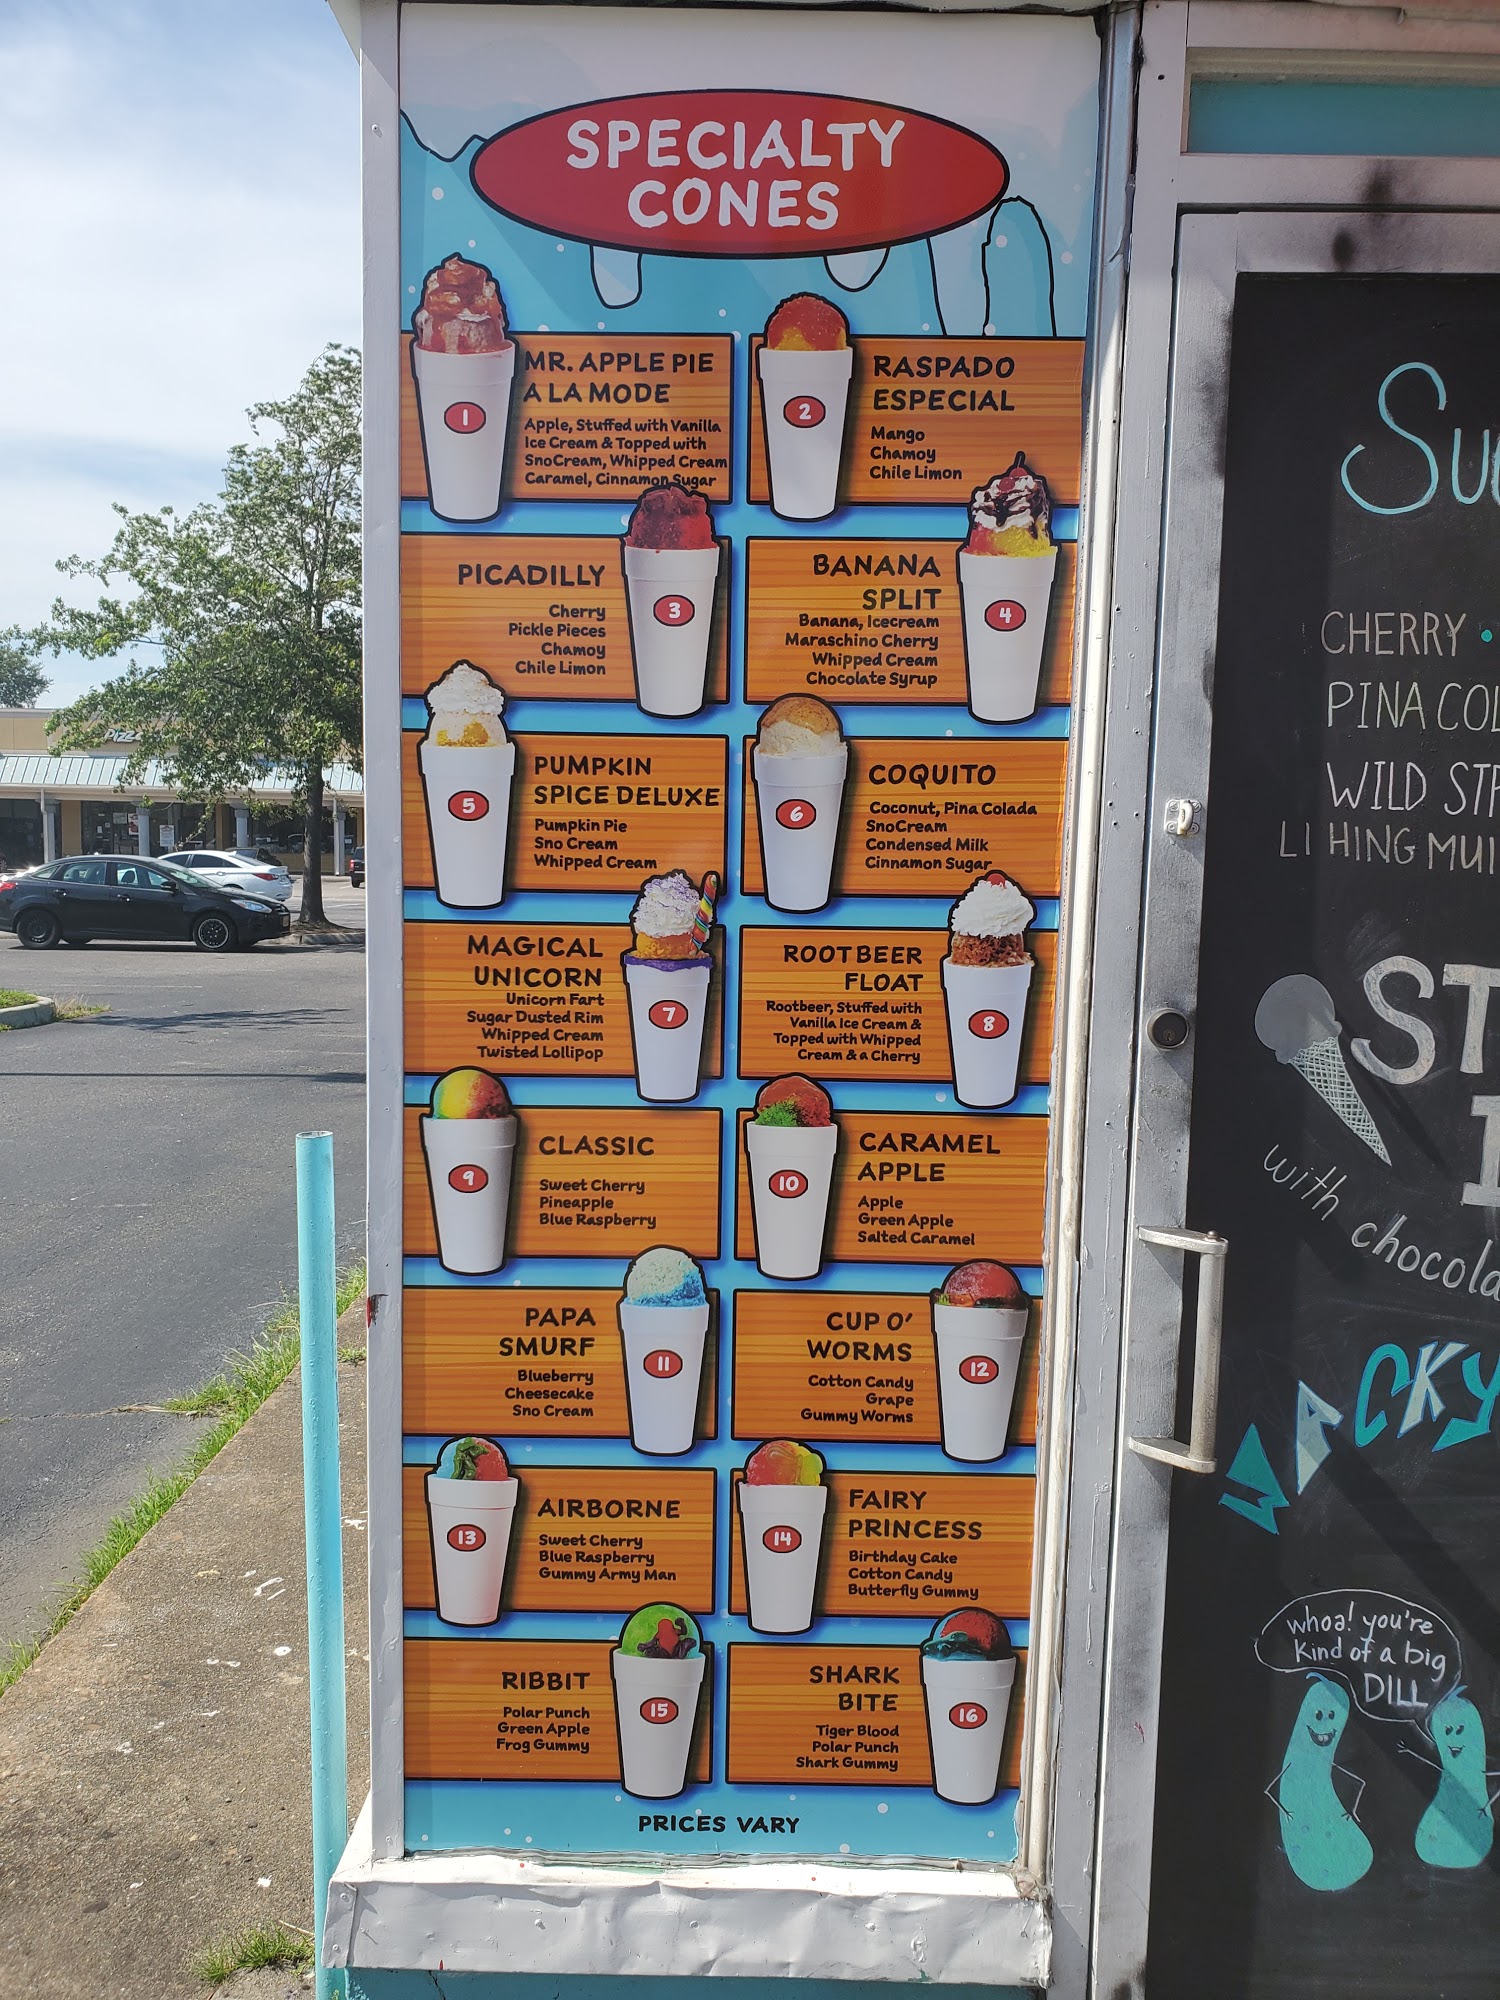 SPECIALTY
CONES
1
MR. APPLE PIE
A LA MODE
Apple, Stuffed with Vanilla
Ice Cream & Topped with
SnoCream, Whipped Cream
Caramel, Cinnamon Sugar
2
RASPADO
ESPECIAL
Mango
Chamoy
Chile Limon
PICADILLY
Cherry
Pickle Pieces
Chamoy
Chile Limon
3
BANANA
SPLIT
Banana, Icecream
Maraschino Cherry
Whipped Cream
Chocolate Syrup
4
5
PUMPKIN
SPICE DELUXE
Pumpkin Pie
Sno Cream
Whipped Cream
6
COQUITO
Coconut, Pina Colada
SnoCream
Condensed Milk
Cinnamon Sugar
MAGICAL
UNICORN
Unicorn Fart
Sugar Dusted Rim
Whipped Cream
Twisted Lollipop
7
ROOTBEER
FLOAT
Rootbeer, Stuffed with
Vanilla Ice Cream &
Topped with Whipped
Cream & a Cherry
8
9
CLASSIC
Sweet Cherry
Pineapple
Blue Raspberry
10
CARAMEL
APPLE
Apple
Green Apple
Salted Caramel
PAPA
SMURF
Blueberry
Cheesecake
Sno Cream
11
CUP O'
WORMS
Cotton Candy
Grape
Gummy Worms
12
13
AIRBORNE
Sweet Cherry
Blue Raspberry
Gummy Army Man
14
FAIRY
PRINCESS
Birthday Cake
Cotton Candy
Butterfly Gummy
RIBBIT
Polar Punch
Green Apple
Frog Gummy
15
SHARK
BITE
Tiger Blood
Polar Punch
Shark Gummy
16
PRICES VARY
CHERRY •
PINA COL
WILD STR
LI HING MUI
ST
with chocola
WACKY
whoa! you're
kind of a big
DILL